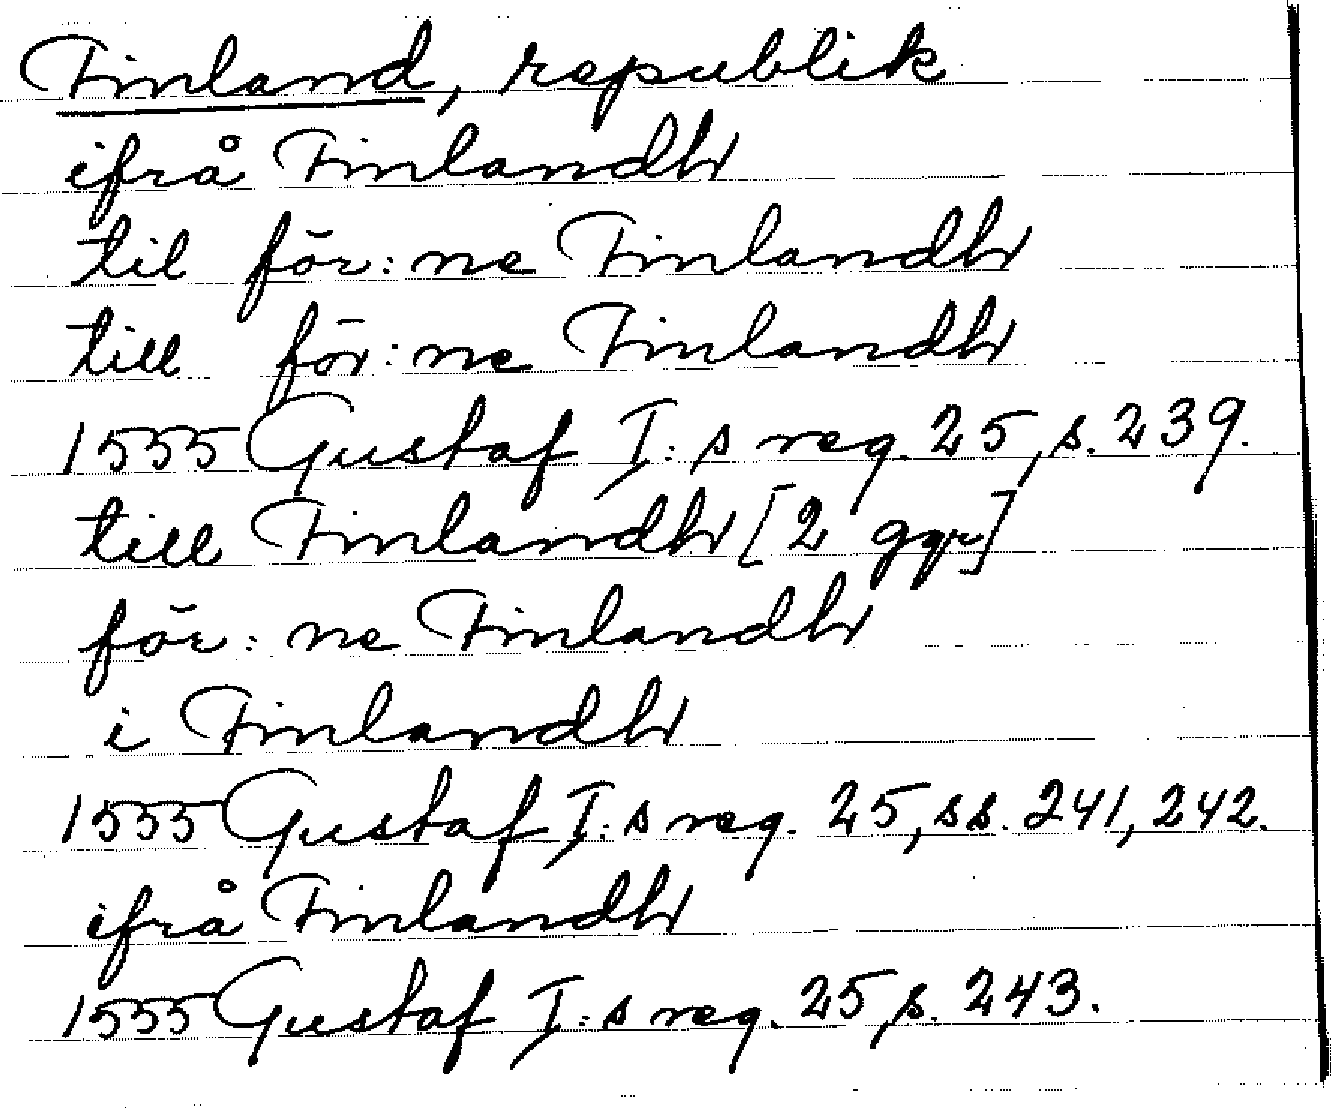 Finland, republik
ifrå Finlandh
til för:ne Finlandh
till för:ne Finlandh
1555 Gustaf I:s reg. 25, s. 239.
till Finlandh [2 ggr]
för:ne Finlandh
i Finlandh
1555 Gustaf I:s reg. 25, ss. 241, 242.
ifrå Finlandh
1555 Gustaf I:s reg. 25, s. 243.